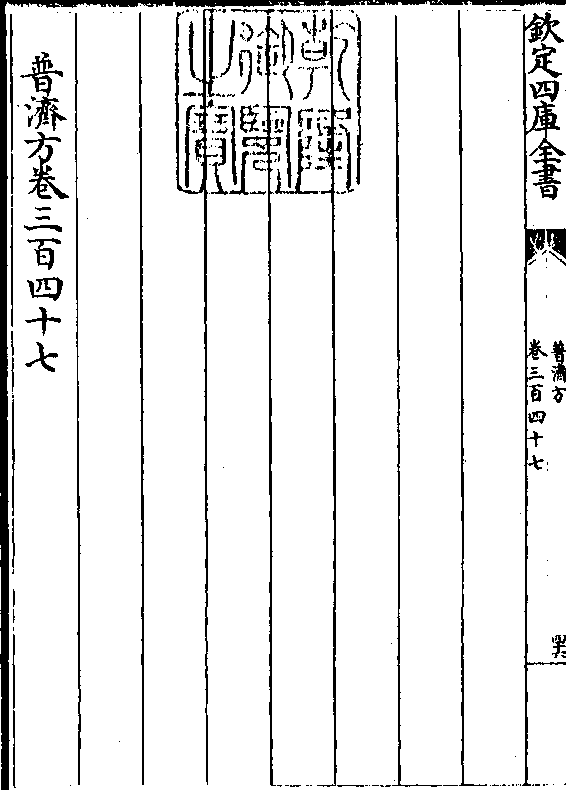 欽定四庫全書
普濟方
卷三百四十七
乾隆御覽之寶
普濟方卷三百四十七